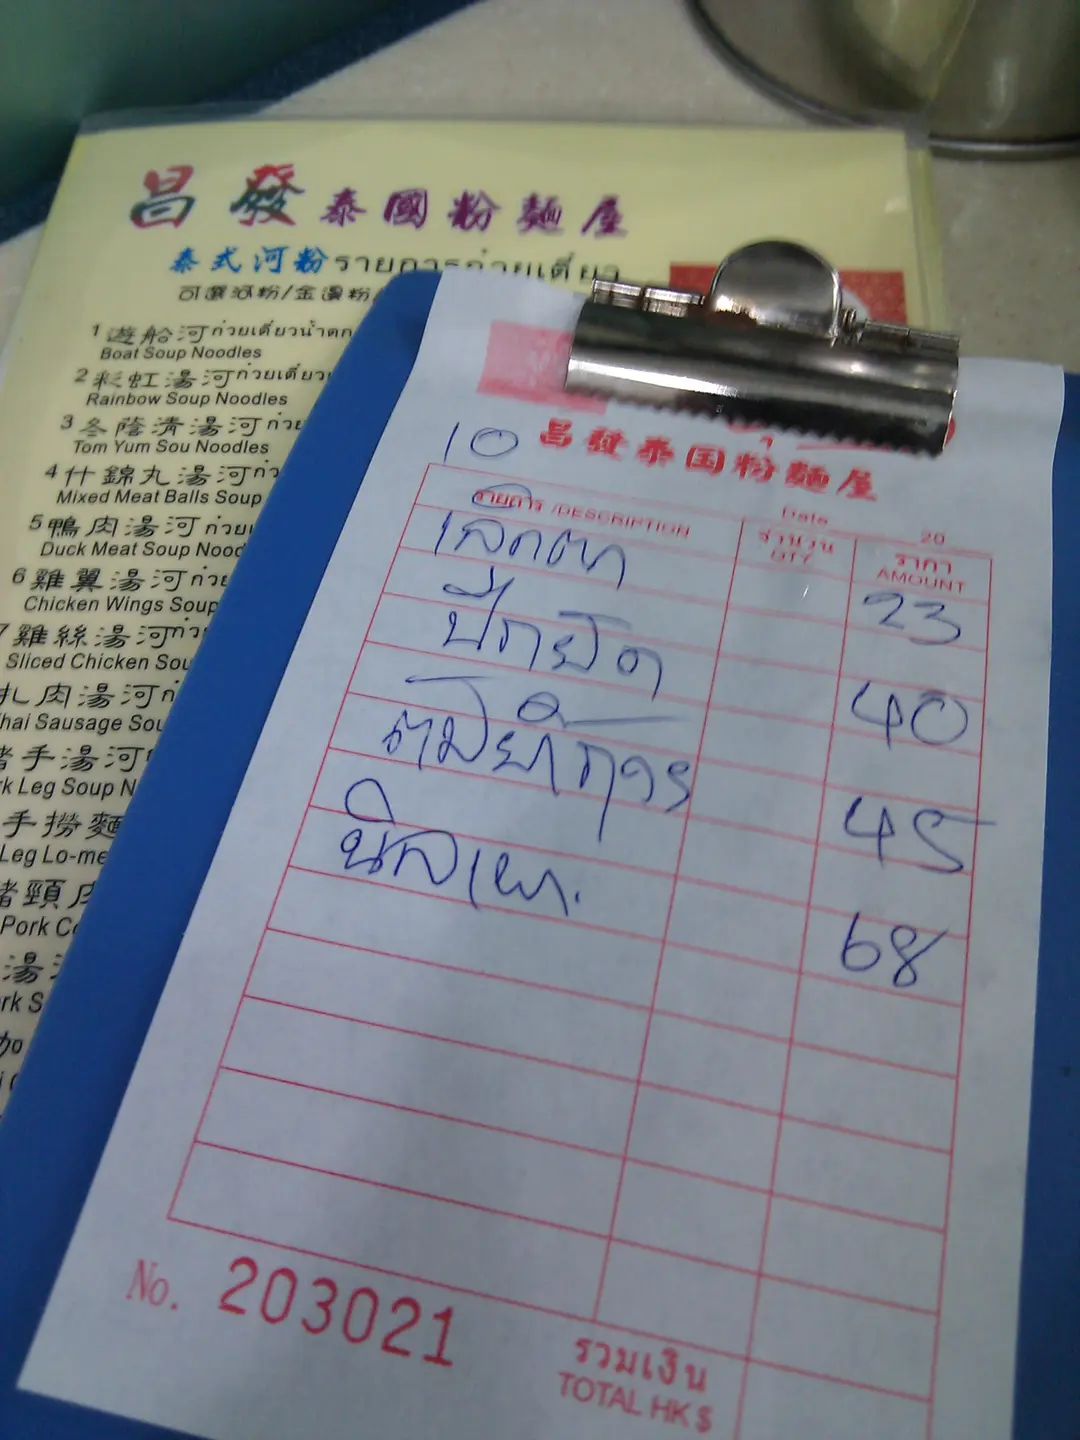 昌發泰國粉麵屋
泰式河粉 รายการก๋วยเตี๋ยว
可選河粉/金邊粉/
1 遊船河 ก๋วยเตี๋ยวน้ำตก
Boat Soup Noodles
2 彩虹湯河 ก๋วยเตี๋ยว
Rainbow Soup Noodles
3 冬蔭清湯河
Tom Yum Sou Noodles
4 什錦丸湯河
Mixed Meat Balls Soup
5 鴨肉湯河
Duck Meat Soup Nood
6 雞翼湯河
Chicken Wings Soup
7 雞絲湯河
Sliced Chicken Sou
扎肉湯河
Thai Sausage Sou
豬手湯河
rk Leg Soup N
手撈麵
Leg Lo-me
豬頸
Pork
湯河
rk S
加
10
昌發泰国粉麵屋
Date 20
รายการ /DESCRIPTION จำนวน QTY ราคา AMOUNT
23
ปีกยัด 40
45
68
No. 203021
รวมเงิน
TOTAL HK $